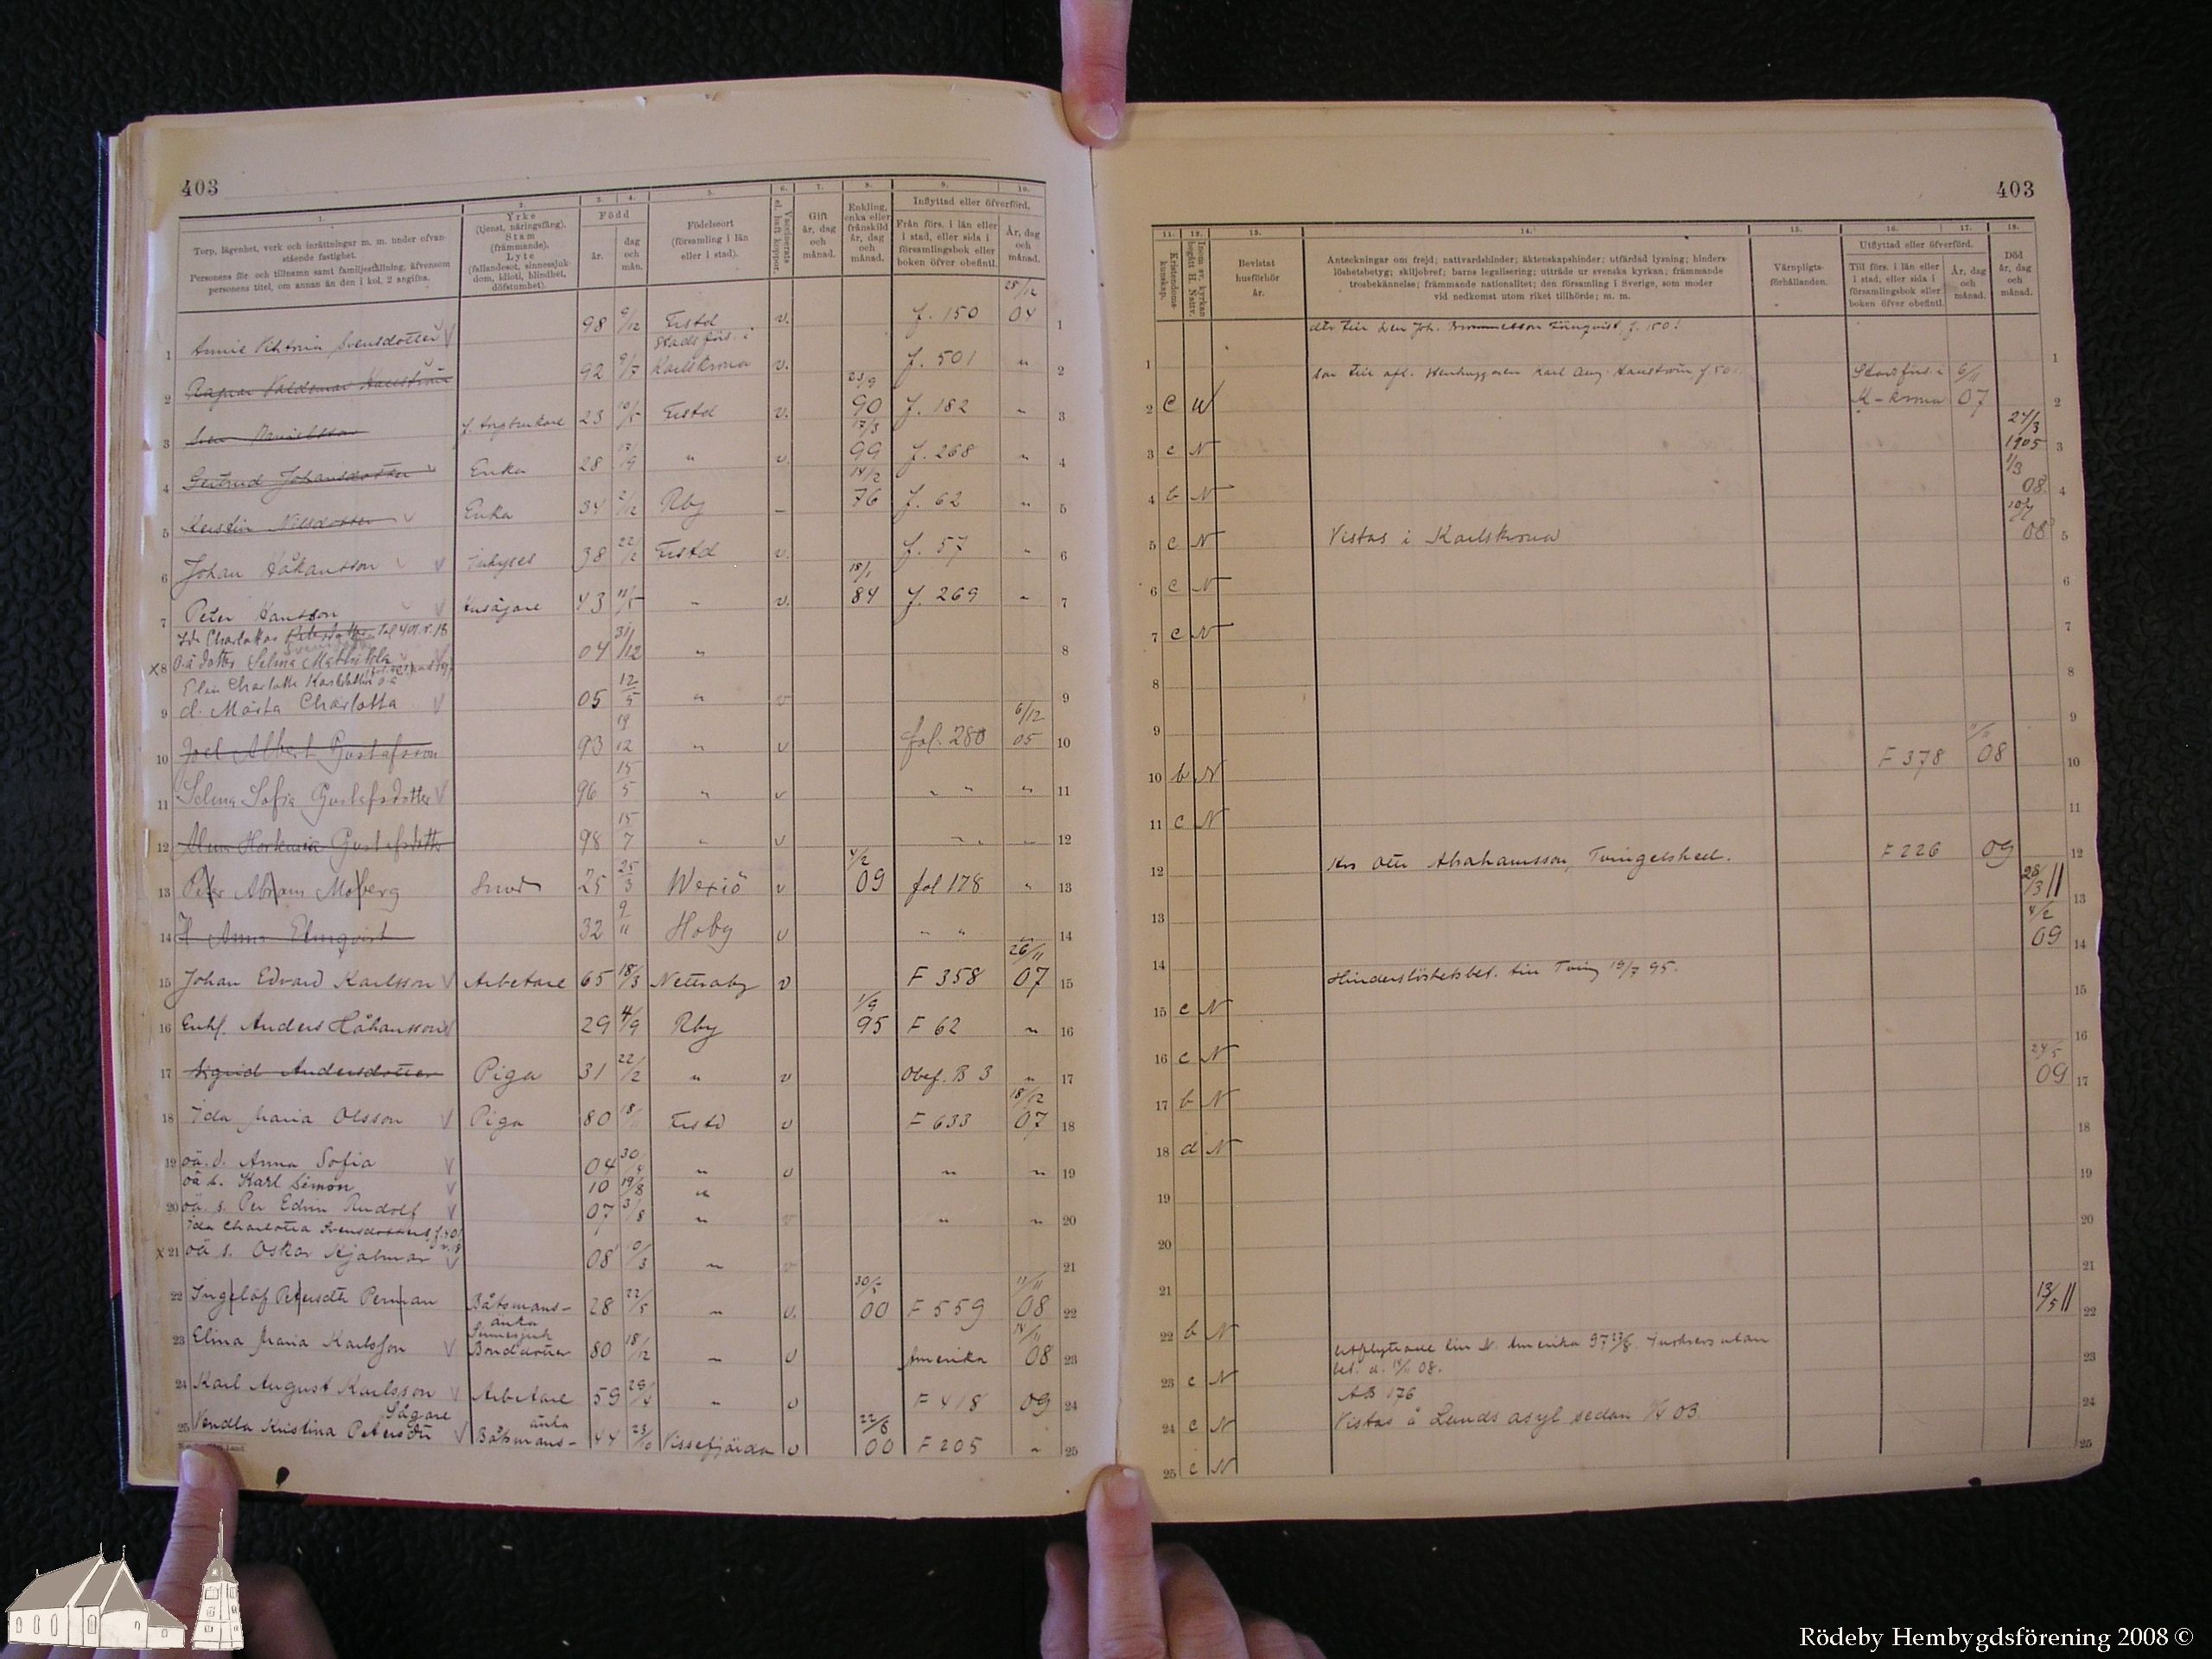 403
1.
2.
3.
4.
5.
6.
7.
8.
9.
10.
Torp, lägenhet, verk och inrättningar m. m. under ofvanstående fastighet.
Personens för- och tillnamn samt familjeställning, äfvensom personens titel, om annan än den i kol. 2 angifna.
Yrke (tjenst, näringsfång). Stam (främmande). Lyte (fallandesot, sinnessjukdom, idioti, blindhet, döfstumhet).
Född
år.
dag och mån.
Födelseort (församling i län eller i stad).
Vaccinerats el. haft koppor.
Gift år, dag och månad.
Enkling, enka eller frånskild år, dag och månad.
Inflyttad eller öfverförd.
Från förs. i län eller i stad, eller sida i församlingsbok eller boken öfver obefintl.
År, dag och månad.
1 Annie Viktoria Svensdotter 98 9/12 Frstd v. f. 150 28/12 04 1
2 Ragnar Valdemar 92 9/7 Stadsförs. i Karlskrona v. f. 501 " 2
3 Sven Danielsson 23 Frstd v. 23/9 90 f. 182 " 3
4 Gertrud Johansdotter Enka 28 " v. 17/3 99 f. 268 " 4
5 Kerstin Nilsdotter Enka 34 2/12 Rby – 14/2 76 f. 62 " 5
6 Johan Håkansson Inhyses 38 22/2 Frstd v. f. 57 " 6
7 Peter Hansson Husägare 43 " v. 18/1 84 f. 269 " 7
Ida Charlottas
x8 o.ä dotter Selma Mathilda 04 31/12 " 8
Elin Charlotta
9 d. Märta Charlotta 05 12/5 " v 9
10 Joel Albert Gustafsson 93 19/12 " v fol. 280 6/12 05 10
11 Selma Sofia Gustafsdotter 96 15/5 " v " " " 11
12 Gustafsdotter 98 15/7 " v " " " 12
13 Peter Abram Moberg Smed 25 25/3 Wexiö v 4/2 09 fol 178 " 13
14 H Anna Elmqvist 32 9/11 Hoby v " " " 14
15 Johan Edvard Karlsson Arbetare 65 18/3 Nettraby v F 358 26/11 07 15
16 Enkl. Anders Håkansson 29 4/9 Rby 1/9 95 F 62 " 16
17 Sigrid Andersdotter Piga 31 22/2 " v Obef. B 3 " 17
18 Ida Maria Olsson Piga 80 Frstd v F 633 18/12 07 18
19 oä. d. Anna Sofia 04 " v " " 19
oä s. Karl Simon 10 19/8 "
20 oä. s. Per Edvin Rudolf 07 3/8 " v " " 20
Ida Charlotta Svensdotters f. 401 r. 18
x 21 oä s. Oskar Hjalmar 08 " v 21
22 Ingelöf Petersdtr Perman Båtsmans- änka 28 22/5 " v. 00 F 559 11/11 08 22
23 Elina Maria Karlsson Sinnessjuk Bonddotter 80 18/12 " v Amerika 08 23
24 Karl August Karlsson Arbetare 59 29/4 " v F 418 09 24
Sågare
25 Vendla Kristina Petersdtr Båtsmans- änka 44 Vissefjärda v 22/6 00 F 205 " 25
403
11.
12.
13.
14.
15.
16.
17.
18.
Kristendomskunskap.
Inom sv. kyrkan begått H. Nattv.
Bevistat husförhör år.
Anteckningar om frejd; nattvardshinder; äktenskapshinder; utfärdad lysning; hinderslöshetsbetyg; skiljobref; barns legalisering; utträde ur svenska kyrkan; främmande trosbekännelse; främmande nationalitet; den församling i Sverige, som moder vid nedkomst utom riket tillhörde; m. m.
Värnpligtsförhållanden.
Utflyttad eller öfverförd.
Till förs. i län eller i stad, eller sida i församlingsbok eller boken öfver obefintl.
År, dag och månad.
Död år, dag och månad.
1 dtr till Joh. f. 150! 1
2 c son till afl. Stenhuggaren Karl Aug. f. 501 Stads förs. i K-krona 6/11 07 2
3 c N 27/3 1905 3
4 b N 1/3 08. 4
5 c N Vistas i Karlskrona 08 5
6 c N 6
7 c N 7
8 8
9 9
10 b N F 378 08 10
11 c N 11
12 hos Otto Abrahamsson, Tvingelshed. F 226 09 12
13 28/3 11 13
14 4/2 09 14
Hinderslöshetsbet. till Tving 19/7 95.
15 c N 15
16 c N 16
17 b N 24/5 09 17
18 d N 18
19 19
20 20
21 21
22 b N 13/5 11 22
23 c N Utflyttade till N. Amerika 97 utan bet. d. 08. 23
AB 176
24 c N Vistas å Lunds asyl sedan 03. 24
25 c N 25
Rödeby Hembygdsförening 2008 ©